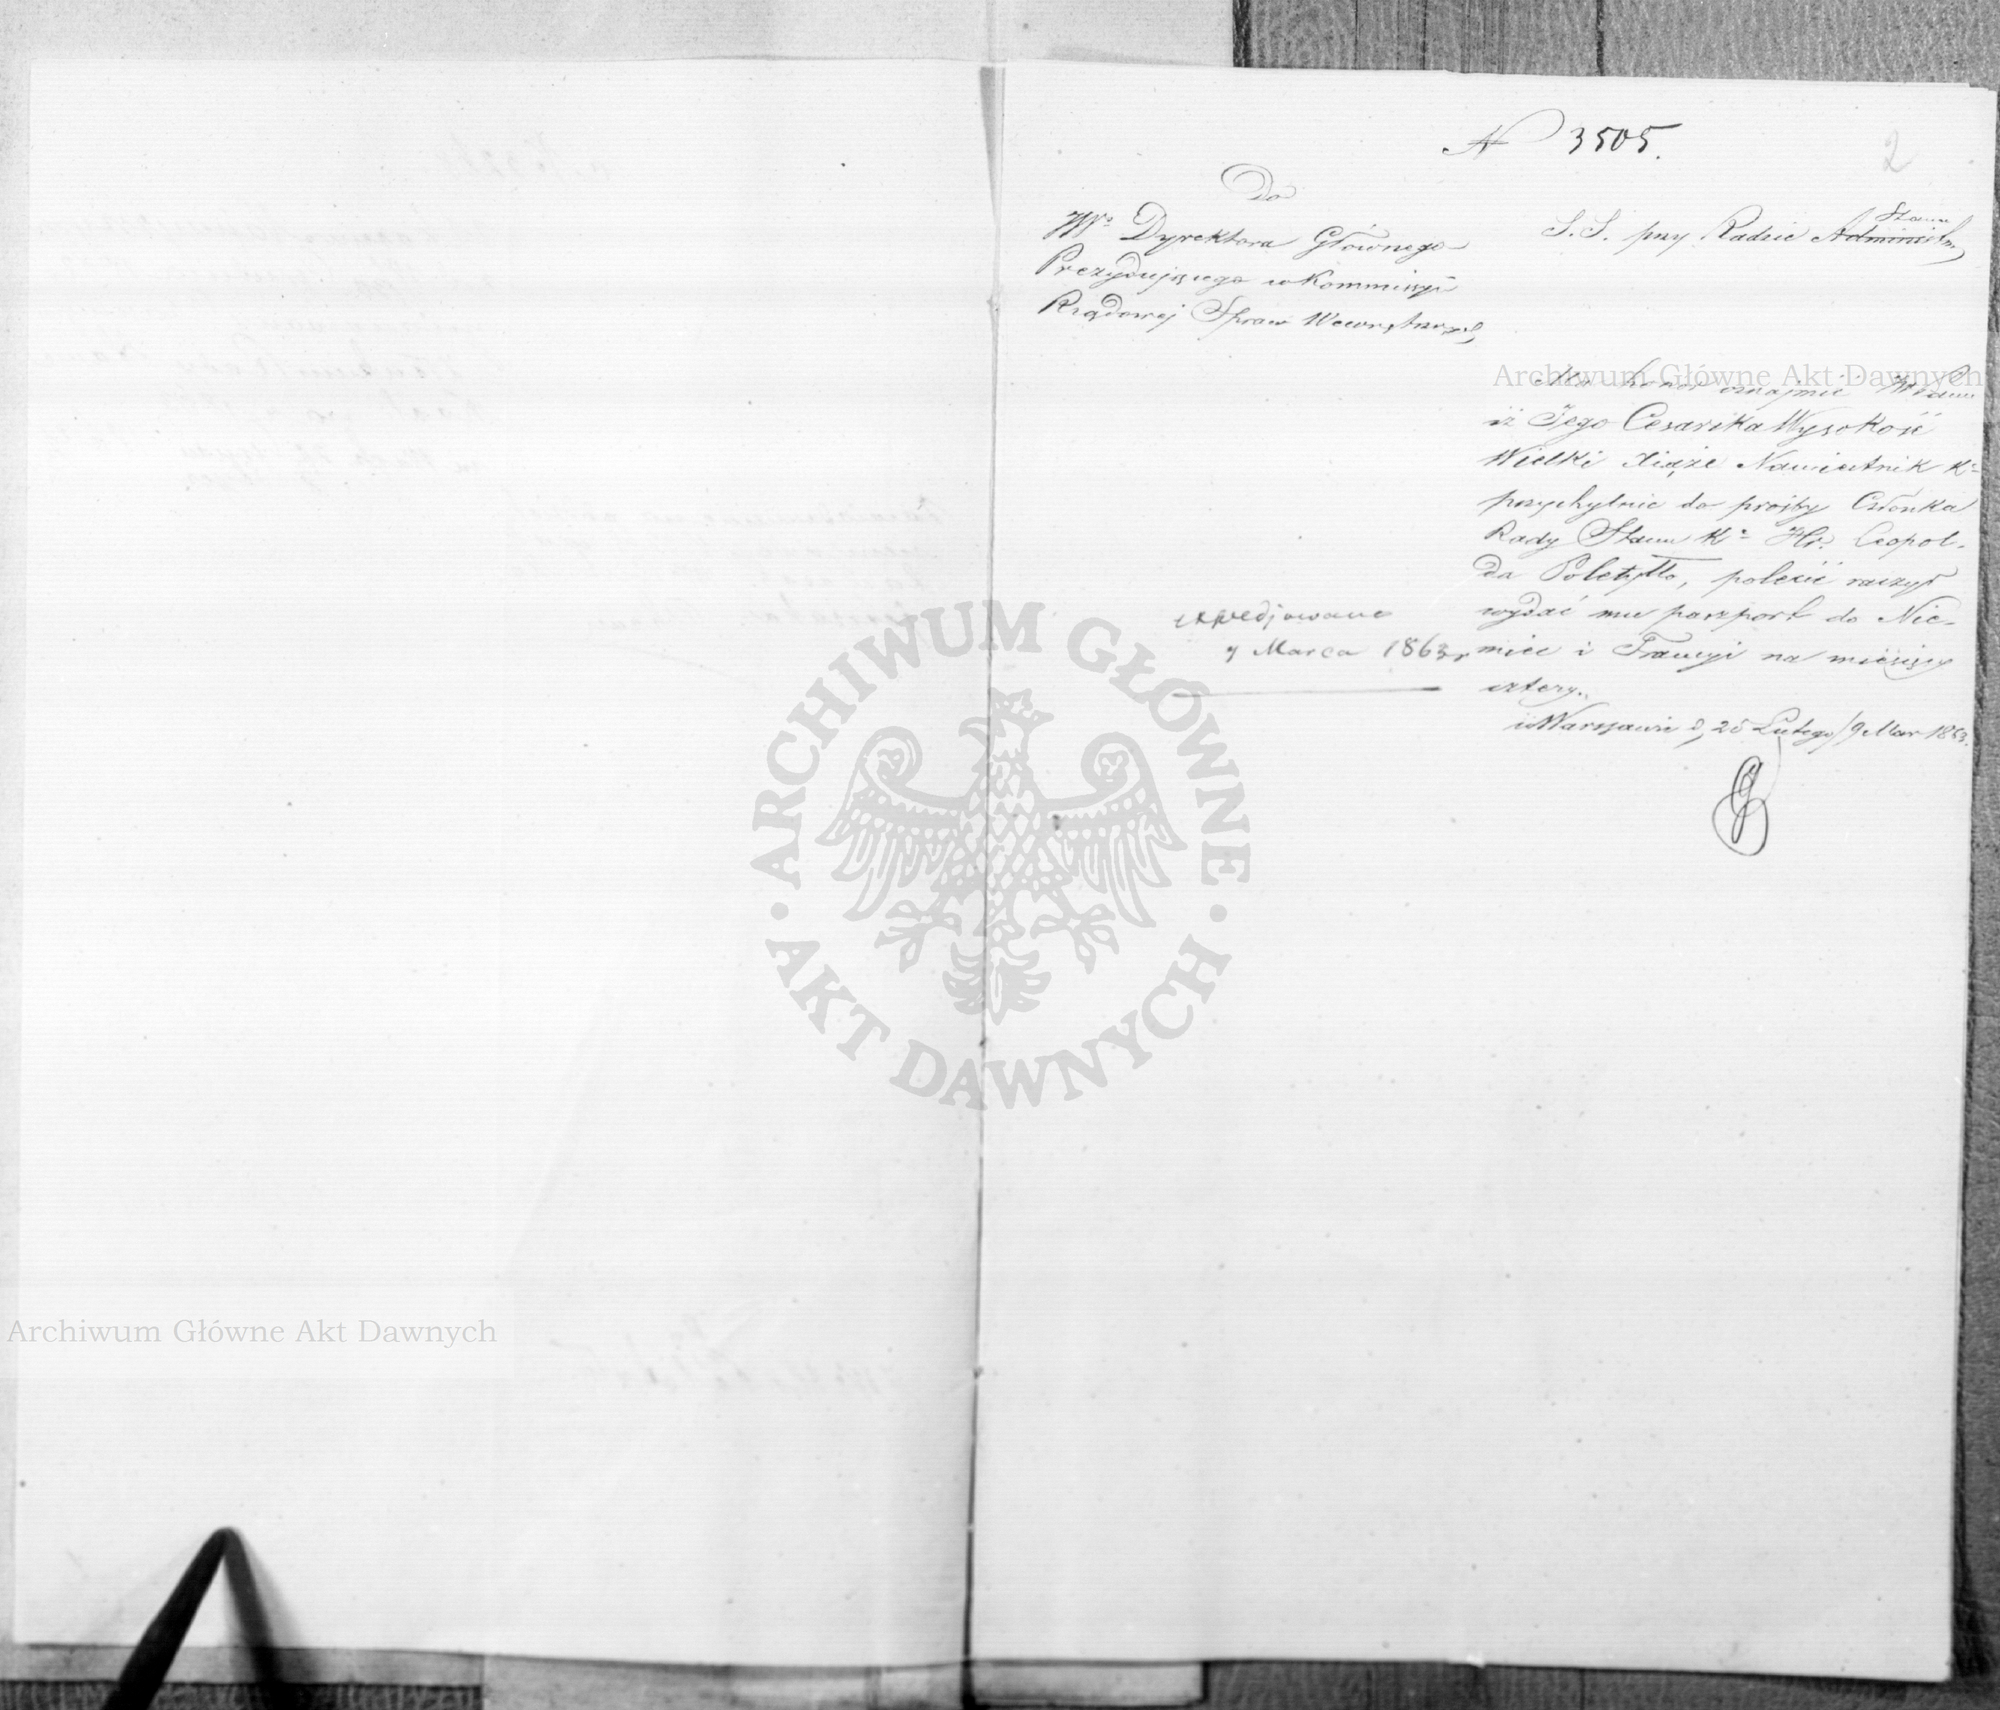 N 3505.
2
Do
JWo Dyrektora Głównego
Prezydującego w Kommissyi
Rządowej Spraw Wewnętrznych
S. S. przy Radzie Administr.
Stanu
Mam honor oznajmić JWPanu
iż Jego Cesarska Wysokość
Wielki Xiąże Namiestnik Ka
przychylnie do prośby Członka
Rady Stanu Ka Hr. Leopol-
da Poletyłło, polecić raczył
wydać mu paszport do Nie-
miec i Francyi na miesięcy
cztery.
w Warszawie d, 25 Lutego/9 Mar 1863.
expedjowano
9 Marca 1863 r
Archiwum Główne Akt Dawnych
ARCHIWUM GŁÓWNE
· AKT DAWNYCH ·
Archiwum Główne Akt Dawnych